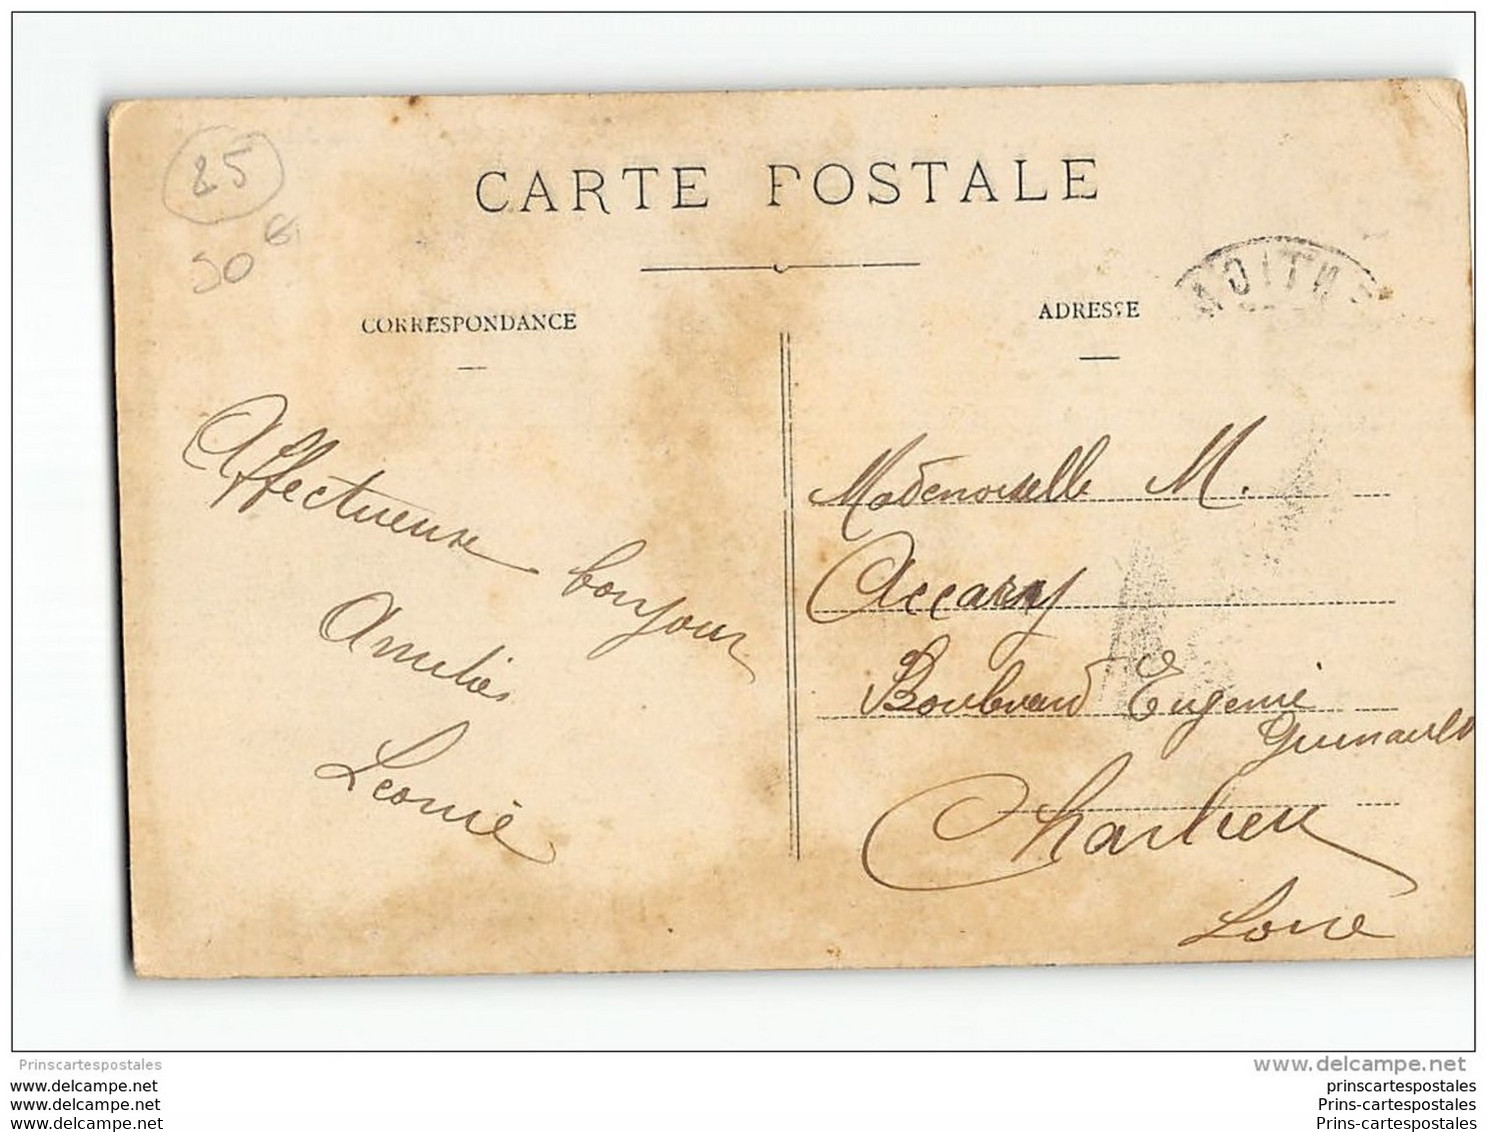 85
50 €
CARTE POSTALE
CORRESPONDANCE
ADRESSE
Affectueuse bonjour
Amelie
Leonie
Mademoiselle M.
Accarry
Boulevard Eugenie
Guinault
Charlieu
Loire
Prinscartespostales
www.delcampe.net
www.delcampe.net
www.delcampe.net
www.delcampe.net
prinscartespostales
Prins-cartespostales
Prins-cartespostales